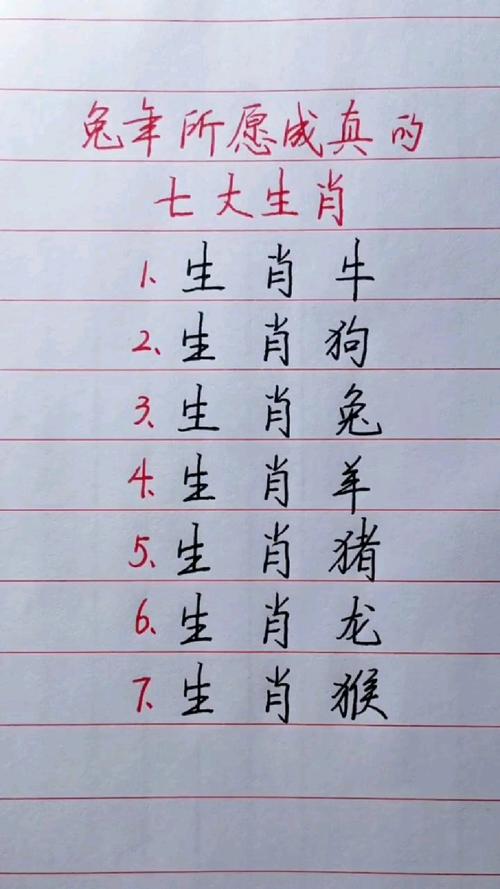 兔年所愿成真的
七大生肖
1、生肖牛
2、生肖狗
3、生肖兔
4、生肖羊
5、生肖猪
6、生肖龙
7、生肖猴